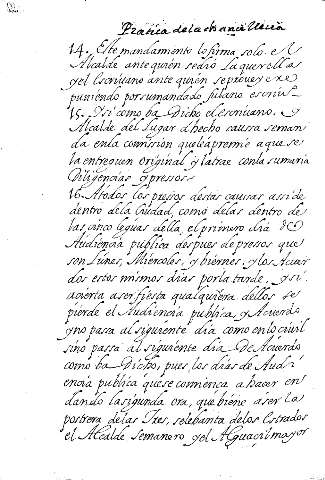 Pratica de la chancilleria
14. Este mandamiento lo firma solo el
Alcalde ante quien se dio la querella
y el Escriuano ante quien se prouey e xe
puniendo por su mandado, fulano escriuº
15. Y si como ba dicho el escriuano, y
Alcalde del lugar a hecho caussa se man
da en la comission que le apremie a que se
la entreguen original y latrae con la sumaria
Diligencias y presos
16. A todos los pressos destas causas assi de
dentro de la Ciudad, como de las dentro de
las cinco leguas della el primero dia de
Audiencia publica despues de presos que
son Lunes, Miercoles, y biernes, y los Acuer
dos estos mismos dias por la tarde, y si
acierta a ser fiesta qualquiera dellos se
pierde el Audiencia publica, y Acuerdo
y no passa al siguiente dia como en lo ciuil
sino passa al siguiente dia De Acuerdo
como ba Dicho, pues los dias de Audi
encia publica que se comienca a hacer en
dando la sigunda ora, que biene a ser la
postrera de las Tres, se lebanta de los Estrados
el Alcalde semanero y el Alguacil mayor